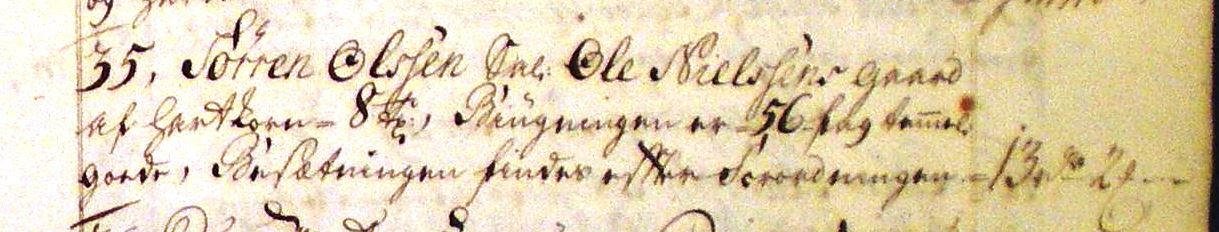 35, Sörren Olssen Sal: Ole Nielssens gaard
af Hartkorn = 8 Bÿgningen er = 56 fag temel:
goede, Besætningen findes efter Forordningen = 13 2